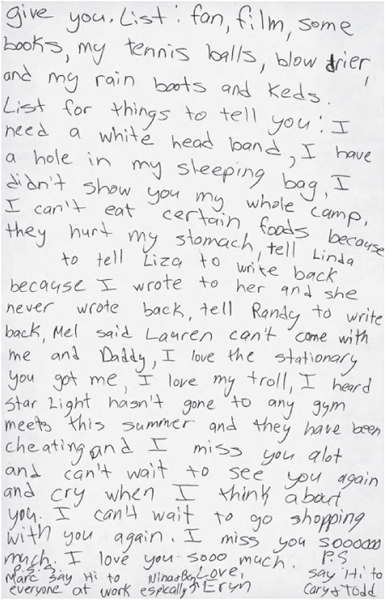 give you. List: fan, film, some
books, my tennis balls, blow drier,
and my rain boots and Keds.
List for things to tell you: I
need a white head band, I have
a hole in my sleeping bag, I
didn't show you my whole camp,
I can't eat certain foods because
they hurt my stomach, tell Linda
to tell Liza to write back
because I wrote to her and she
never wrote back, tell Randy to write
back, Mel said Lauren can't come with
me and Daddy, I love the stationary
you got me, I love my troll, I heard
Star Light hasn't gone to any gym
meets this summer and they have been
cheating and I miss you alot
and can't wait to see you again
and cry when I think about
you. I can't wait to go shopping
with you again. I miss you soooooo
much. I love you sooo much.
P.S
say Hi to
Cary + Todd
Love,
Eryn
P.S.S.
Marc say Hi to
everyone at work espically